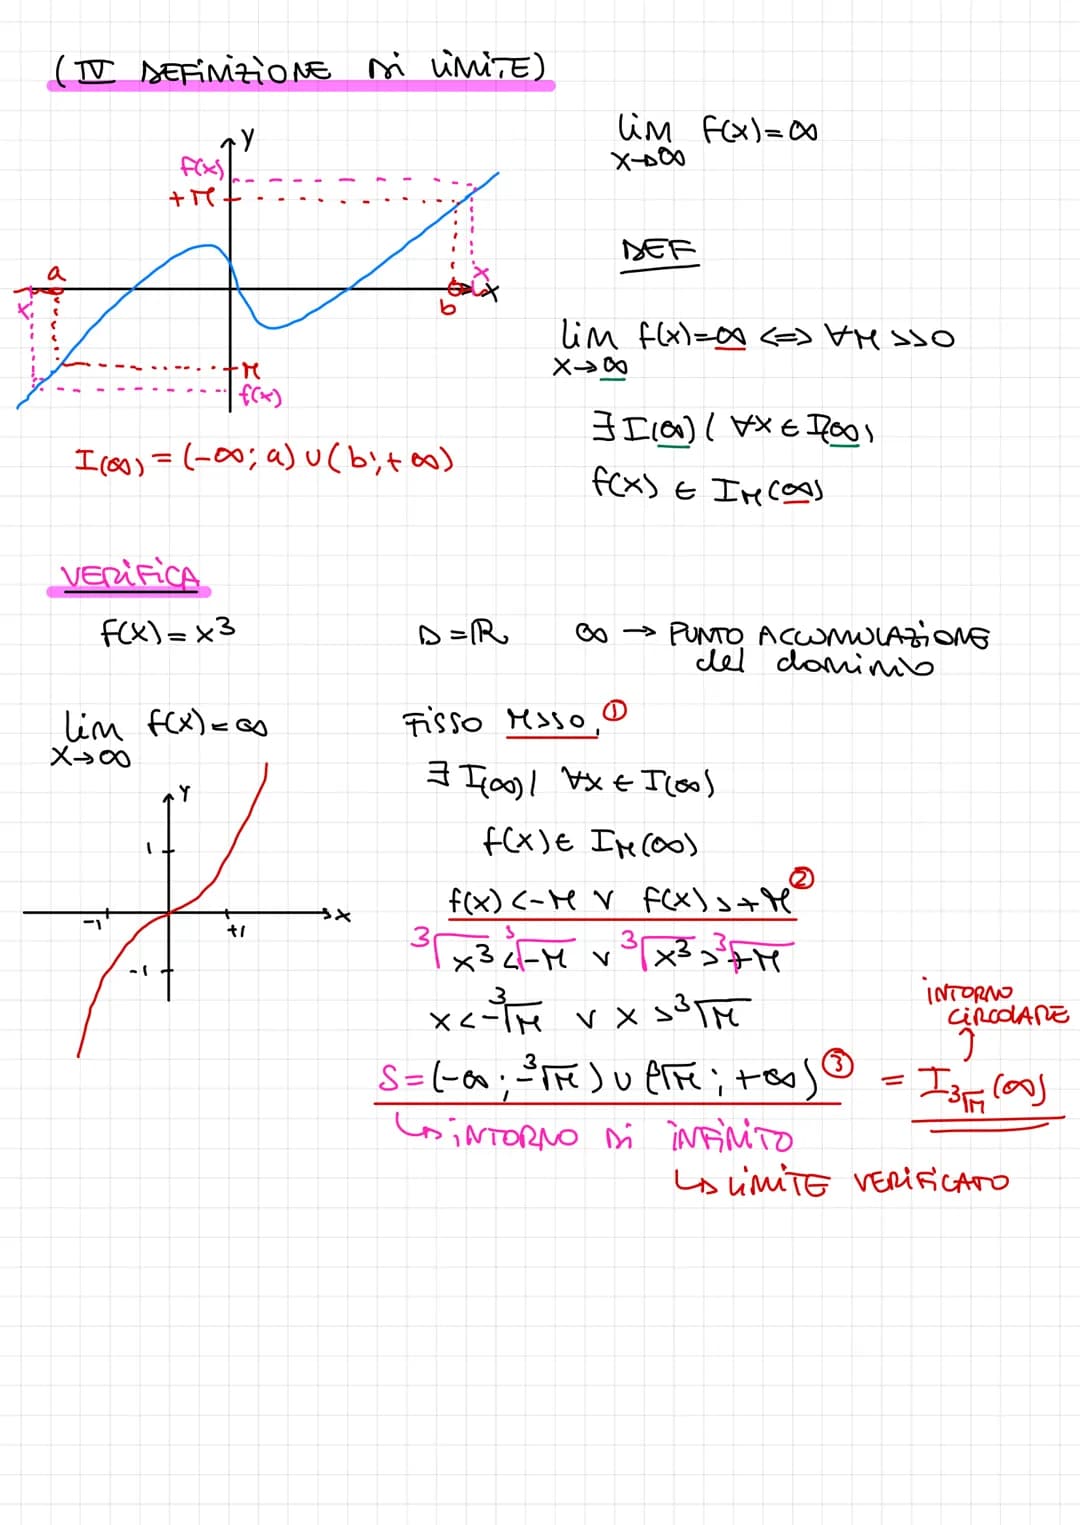 (IV DEFINIZIONE DI LIMITE)
lim f(x)=∞
x→∞
y
f(x)
+M
a
x
b
x
x
-M
f(x)
I(∞) = (-∞; a) ∪ (b; +∞)
DEF
lim f(x)=∞ <=> ∀M>>0
x→∞
∃ I(∞) | ∀x ∈ I(∞)
f(x) ∈ I_M(∞)
VERIFICA
f(x) = x³
D = ℝ
∞ → PUNTO ACCUMULAZIONE
del dominio
lim f(x) = ∞
x→∞
Fisso M>>0, ①
∃ I(∞) | ∀x ∈ I(∞)
f(x) ∈ I_M(∞)
f(x) <-M ∨ f(x) >+M ②
³√x³ < ³√-M ∨ ³√x³ > ³√+M
x < -³√M ∨ x > ³√M
S = (-∞; -³√M) ∪ (³√M; +∞) ③ = I_³√M (∞)
INTORNO
CIRCOLARE
↳ INTORNO DI INFINITO
↳ LIMITE VERIFICATO
y
1
-1
+1
x
-1